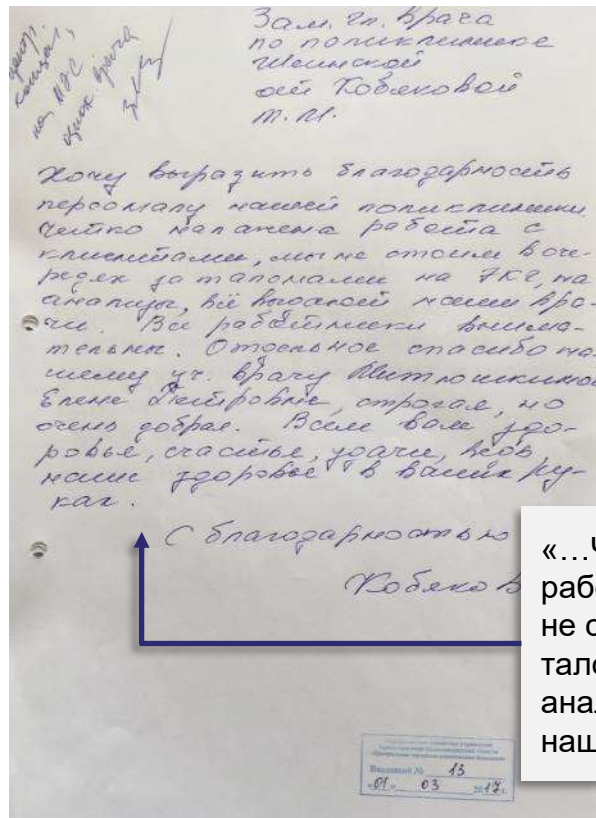 Зам. гл. врача
по поликлинике
от Кобяковой
Т. М.
на МЭС
врача
Хочу выразить благодарность
персоналу нашей поликлиники.
Четко налажена работа с
клиентами, мы не стоим в оче-
редях за талонами на ЭКГ, на
анализы, всё выдают наши вра-
чи. Все работники внима-
тельны. Отдельное спасибо на-
шему уч. врачу
Елене Дмитровне, строгая, но
очень добрая. Всем вам здо-
ровья, счастья, удачи, ведь
наше здоровье в ваших ру-
ках.
С благодарностью
Кобяков
«…Ч
раб
не с
тало
анал
наш
Входящий № 13
«01» 03 2017г.